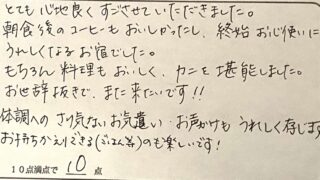 とても心地良くすごさせていただきました。
朝食後のコーヒーもおいしかったし、終始お心使いに
うれしくなるお宿でした。
もちろん料理もおいしく、カニを堪能しました。
お世辞抜きで、また来たいです!!
体調へのさり気ないお気遣い・お声がけもうれしく存じます
お持ちかえりできる(ごはん等)のも楽しいです!
10点満点で 10 点